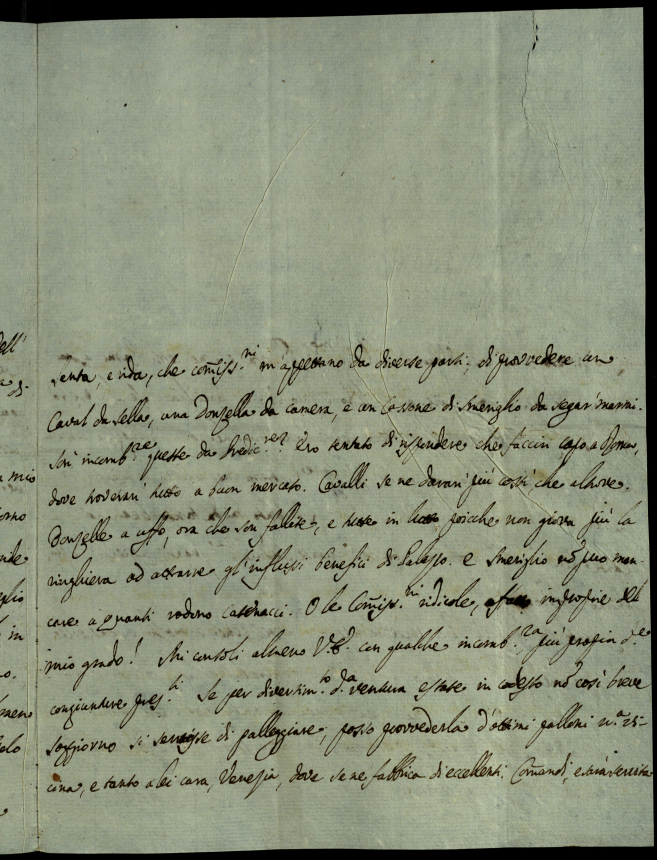 dell'
senta, e rida, che comiss.ni m'aspettano da diverse parti; di provvedere un
Caval da sella, una Donzella da camera, e un Cassone di Smeriglio da segar' marmi.
Son' incomb.ze queste da Predic.re? Ero tentato di rispondere che faccin capo a Roma,
dove troveran' tutto a buon mercato. Cavalli se ne daran' più costì che altrove.
Donzelle a uffo, ora che son fallite, e tutte in lutto poiche non giova più la
ringhiera ad attrarre gl'influssi benefici di Palazzo. e Smeriglio nõ può man-
care a quanti rodono catenacci. O le Comiss.ni ridicole, improprie del
mio grado! Mi consoli almeno V.E. con qualche incomb.za più propria d.e
congiunture pres.ti Se per divertim.to d.a ventura estate in codesto nõ così breve
soggiorno si servisse di palleggiare, posso provvederla d'ottimi palloni n.a vi-
cina, e tanto a lei cara, Venezia, dove se ne fabbrica di eccellenti. Comandi, e sarà servita
mio
in